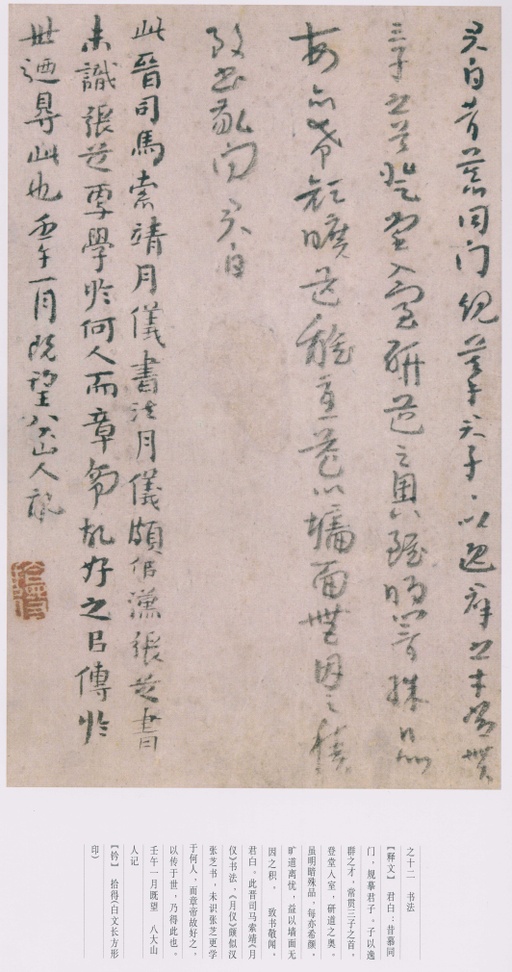 君白昔慕同門規摹君子子以逸群之才常貫
三子之首登堂入室研道之奧雖明闇殊品
每亦希顏曠道離憂益以墻面無因之積
致書敬聞君白
此晉司馬索靖月儀書法月儀頗佀漢張芝書
未識張芝更學於何人而章帝故好之㠯傳於
世迺得此也壬午一月既望八大山人記
之十二 书法
【释文】 君白：昔慕同
门，规摹君子。子以逸
群之才，常贯三子之首，
登堂入室，研道之奥。
虽明暗殊品，每亦希颜，
旷道离忧，益以墙面无
因之积。 致书敬闻，
君白。此晋司马索靖《月
仪》书法，《月仪》颇似汉
张芝书，未识张芝更学
于何人，而章帝故好之，
以传于世，乃得此也。
壬午一月既望 八大山
人记
【钤】 拾得（白文长方形
印）